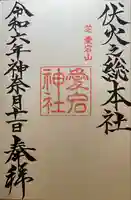 伏火之総本社
芝 愛宕山
愛宕神社
令和六年神無月十一日奉拝